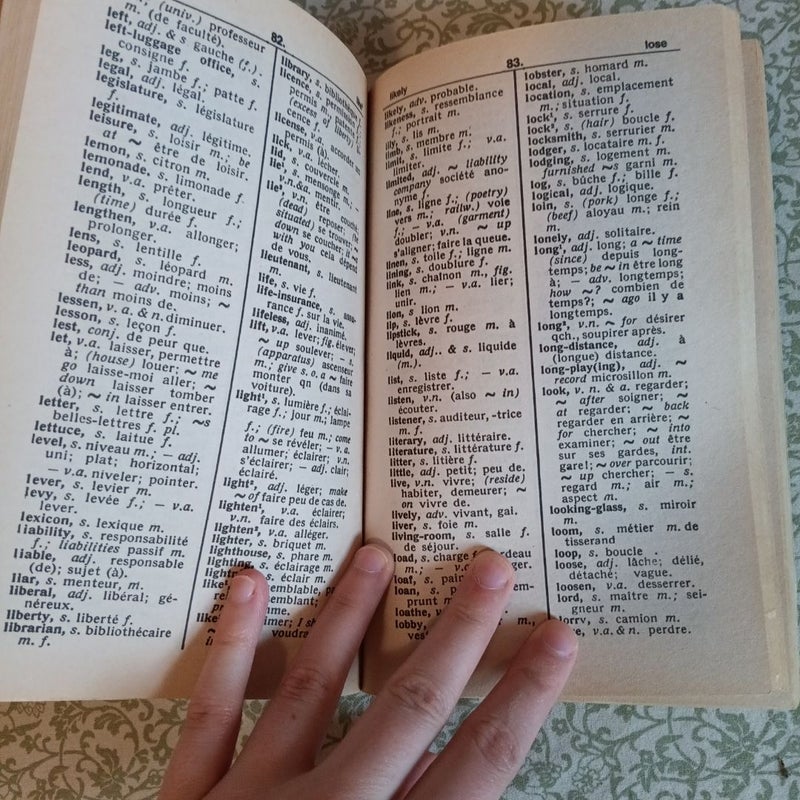 82.
, (univ.) professeur
m. (de faculté).
left, adj. & s gauche (f.).
left-luggage office, s.
consigne f.
leg, s. jambe f.; patte f.
legal, adj. légal.
legislature, s. législature
f.
legitimate, adj. légitime.
leisure, s. loisir m.; be
at ~ être de loisir.
lemon, s. citron m.
lemonade, s. limonade f.
lend, v.a. prêter.
length, s. longueur f.;
(time) durée f.
lengthen, v.a. allonger;
prolonger.
lens, s. lentille f.
leopard, s. léopard m.
less, adj. moindre; moins
de; — adv. moins; ~
than moins de.
lessen, v.a. & n. diminuer.
lesson, s. leçon f.
lest, conj. de peur que.
let, v.a. laisser, permettre
à; (house) louer; ~ me
go laisse-moi aller; ~
down laisser tomber
(à); ~ in laisser entrer.
letter, s. lettre f.; ~s
belles-lettres f. pl.
lettuce, s. laitue f.
level, s. niveau m.; — adj.
uni; plat; horizontal;
— v.a. niveler; pointer.
lever, s. levier m.
levy, s. levée f.; — v.a.
lever.
lexicon, s. lexique m.
liability, s. responsabilité
f.; liabilities passif m.
liable, adj. responsable
(de); sujet (à).
liar, s. menteur, m.
liberal, adj. libéral; gé-
néreux.
liberty, s. liberté f.
librarian, s. bibliothécaire
m. f.
library, s. bibliothè
licence, s. permission
permis m.
(excess of liberty) li-
cence f.
license, v.a. accorder un
permis (à).
lick, v.a. lécher.
lid, s. couvercle m.
lie¹, s. mensonge m.; —
v.n.&a. mentir.
lie², v.n. être couché;
(dead) reposer; (be
situated) se trouver; ~
down se coucher; it ~s
with you cela dépend
de vous.
lieutenant, s. lieutenant
m.
life, s. vie f.
life-insurance, s. assu-
rance f. sur la vie.
lifeless, adj. inanimé.
lift, v.a. lever; fig. élever;
~ up soulever; — s.
(apparatus) ascenseur
m.; give s.o. a ~ faire
monter qn (dans sa
voiture).
light¹, s. lumière f.; éclai-
rage f.; jour m.; lampe
f.; (fire) feu m.; come
to ~ se révéler; — v.a.
allumer; éclairer; v.n.
s'éclairer; — adj. clair;
éclairé.
light², adj. léger; make
~ of faire peu de cas de.
lighten¹, v.a. éclairer;
v.n. faire des éclairs.
lighten², v.a. alléger.
lighter, s. briquet m.
lighthouse, s. phare m.
lighting, s. éclairage m.
lightning, s. éclair m.
like¹ semblable, pa
ressemblan
prep. comme.
like aimer; I sh
voudrai
likely
83.
lose
likely, adv. probable.
likeness, s. ressemblance
f.; portrait m.
lily, s. lis m.
limb, s. membre m.
limit, s. limite f.; v.a.
limiter.
limited, adj. ~ liability
company société ano-
nyme f.
line, s. ligne f.; (poetry)
vers m.; railw.) voie
f.; — v.a. (garment)
doubler; v.n. ~ up
s'aligner; faire la queue.
linen, s. toile f.; ligne m.
lining, s. doublure f.
link, s. chaînon m., fig.
lien m.; — v.a. lier;
unir.
lion, s lion m.
lip, s. lèvre f.
lipstick, s. rouge m. à
lèvres.
liquid, adj.. & s. liquide
(m.).
list, s. liste f.; — v.a.
enregistrer.
listen, v.n. (also ~ in)
écouter.
listener, s. auditeur, -trice
m. f.
literary, adj. littéraire.
literature, s. littérature f.
litter, s. litière f.
little, adj. petit; peu de.
live, v.n. vivre; (reside)
habiter, demeurer; ~
on vivre de.
lively, adv. vivant, gai.
liver, s. foie m.
living-room, s. salle f.
de séjour.
load, s. charge f. rdeau
m.; — v.a. ger.
loaf, s. pain
loan, s. p em-
prunt m
loathe, v.a.
lobby, m.,
vest
lobster, s. homard m.
local, adj. local.
location, s. emplacement
m.; situation f.
lock¹, s. serrure f.
lock², s. (hair) boucle f.
locksmith, s. serrurier m.
lodger, s. locataire m. f.
lodging, s. logement m.
furnished ~s garni m.
log, s. bûche f.; bille f.
logical, adj. logique.
loin, s. (pork) longe f.;
(beef) aloyau m.; rein
m.
lonely, adj. solitaire.
long¹, adj. long; a ~ time
(since) depuis long-
temps; be ~ in être long
à; — adv. longtemps;
how ~? combien de
temps?; ~ ago il y a
longtemps.
long², v.n. ~ for désirer
qch., soupirer après.
long-distance, adj. à
(longue) distance.
long-play(ing), adj. ~
record microsillon m.
look, v.n. & a. regarder;
~ after soigner; ~
at regarder; ~ back
regarder en arrière; ~
for chercher; ~ into
examiner; ~ out être
sur ses gardes, int.
gare!; ~ over parcourir;
~ up chercher; — s.
regard m.; air m.;
aspect m.
looking-glass, s. miroir
m.
loom, s. métier m. de
tisserand
loop, s. boucle
loose, adj. lâche; délié,
détaché; vague.
loosen, v.a. desserrer.
lord, s. maître m.; sei-
gneur m.
lorry, s. camion m.
e, v.a. & n. perdre.